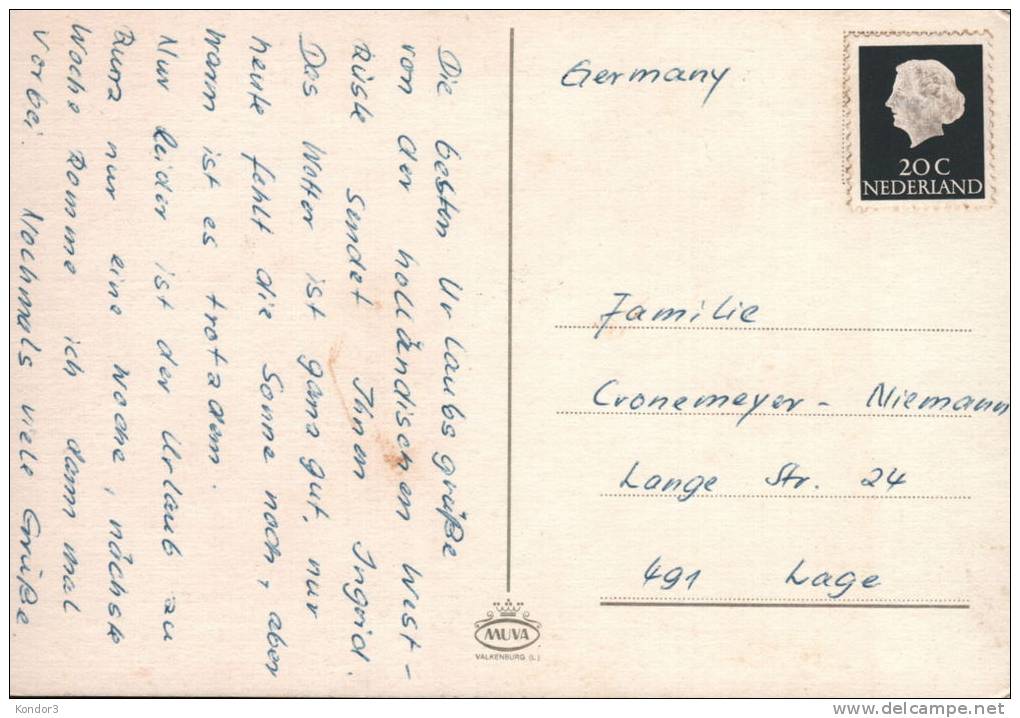 Die besten Urlaubsgrüße
von der holländischen West-
küste sendet Ihnen Ingrid.
Das Wetter ist ganz gut, nur
heute fehlt die Sonne noch, aber
warm ist es trotzdem.
Nur leider ist der Urlaub zu
kurz, nur eine Woche, nächste
Woche komme ich dann mal
vorbei. Nochmals viele Grüße.
Germany
20 C
NEDERLAND
Familie
Cronemeyer - Niemann
Lange Str. 24
491 Lage
MUVA
VALKENBURG (L.)
Kondor3
www.delcampe.net